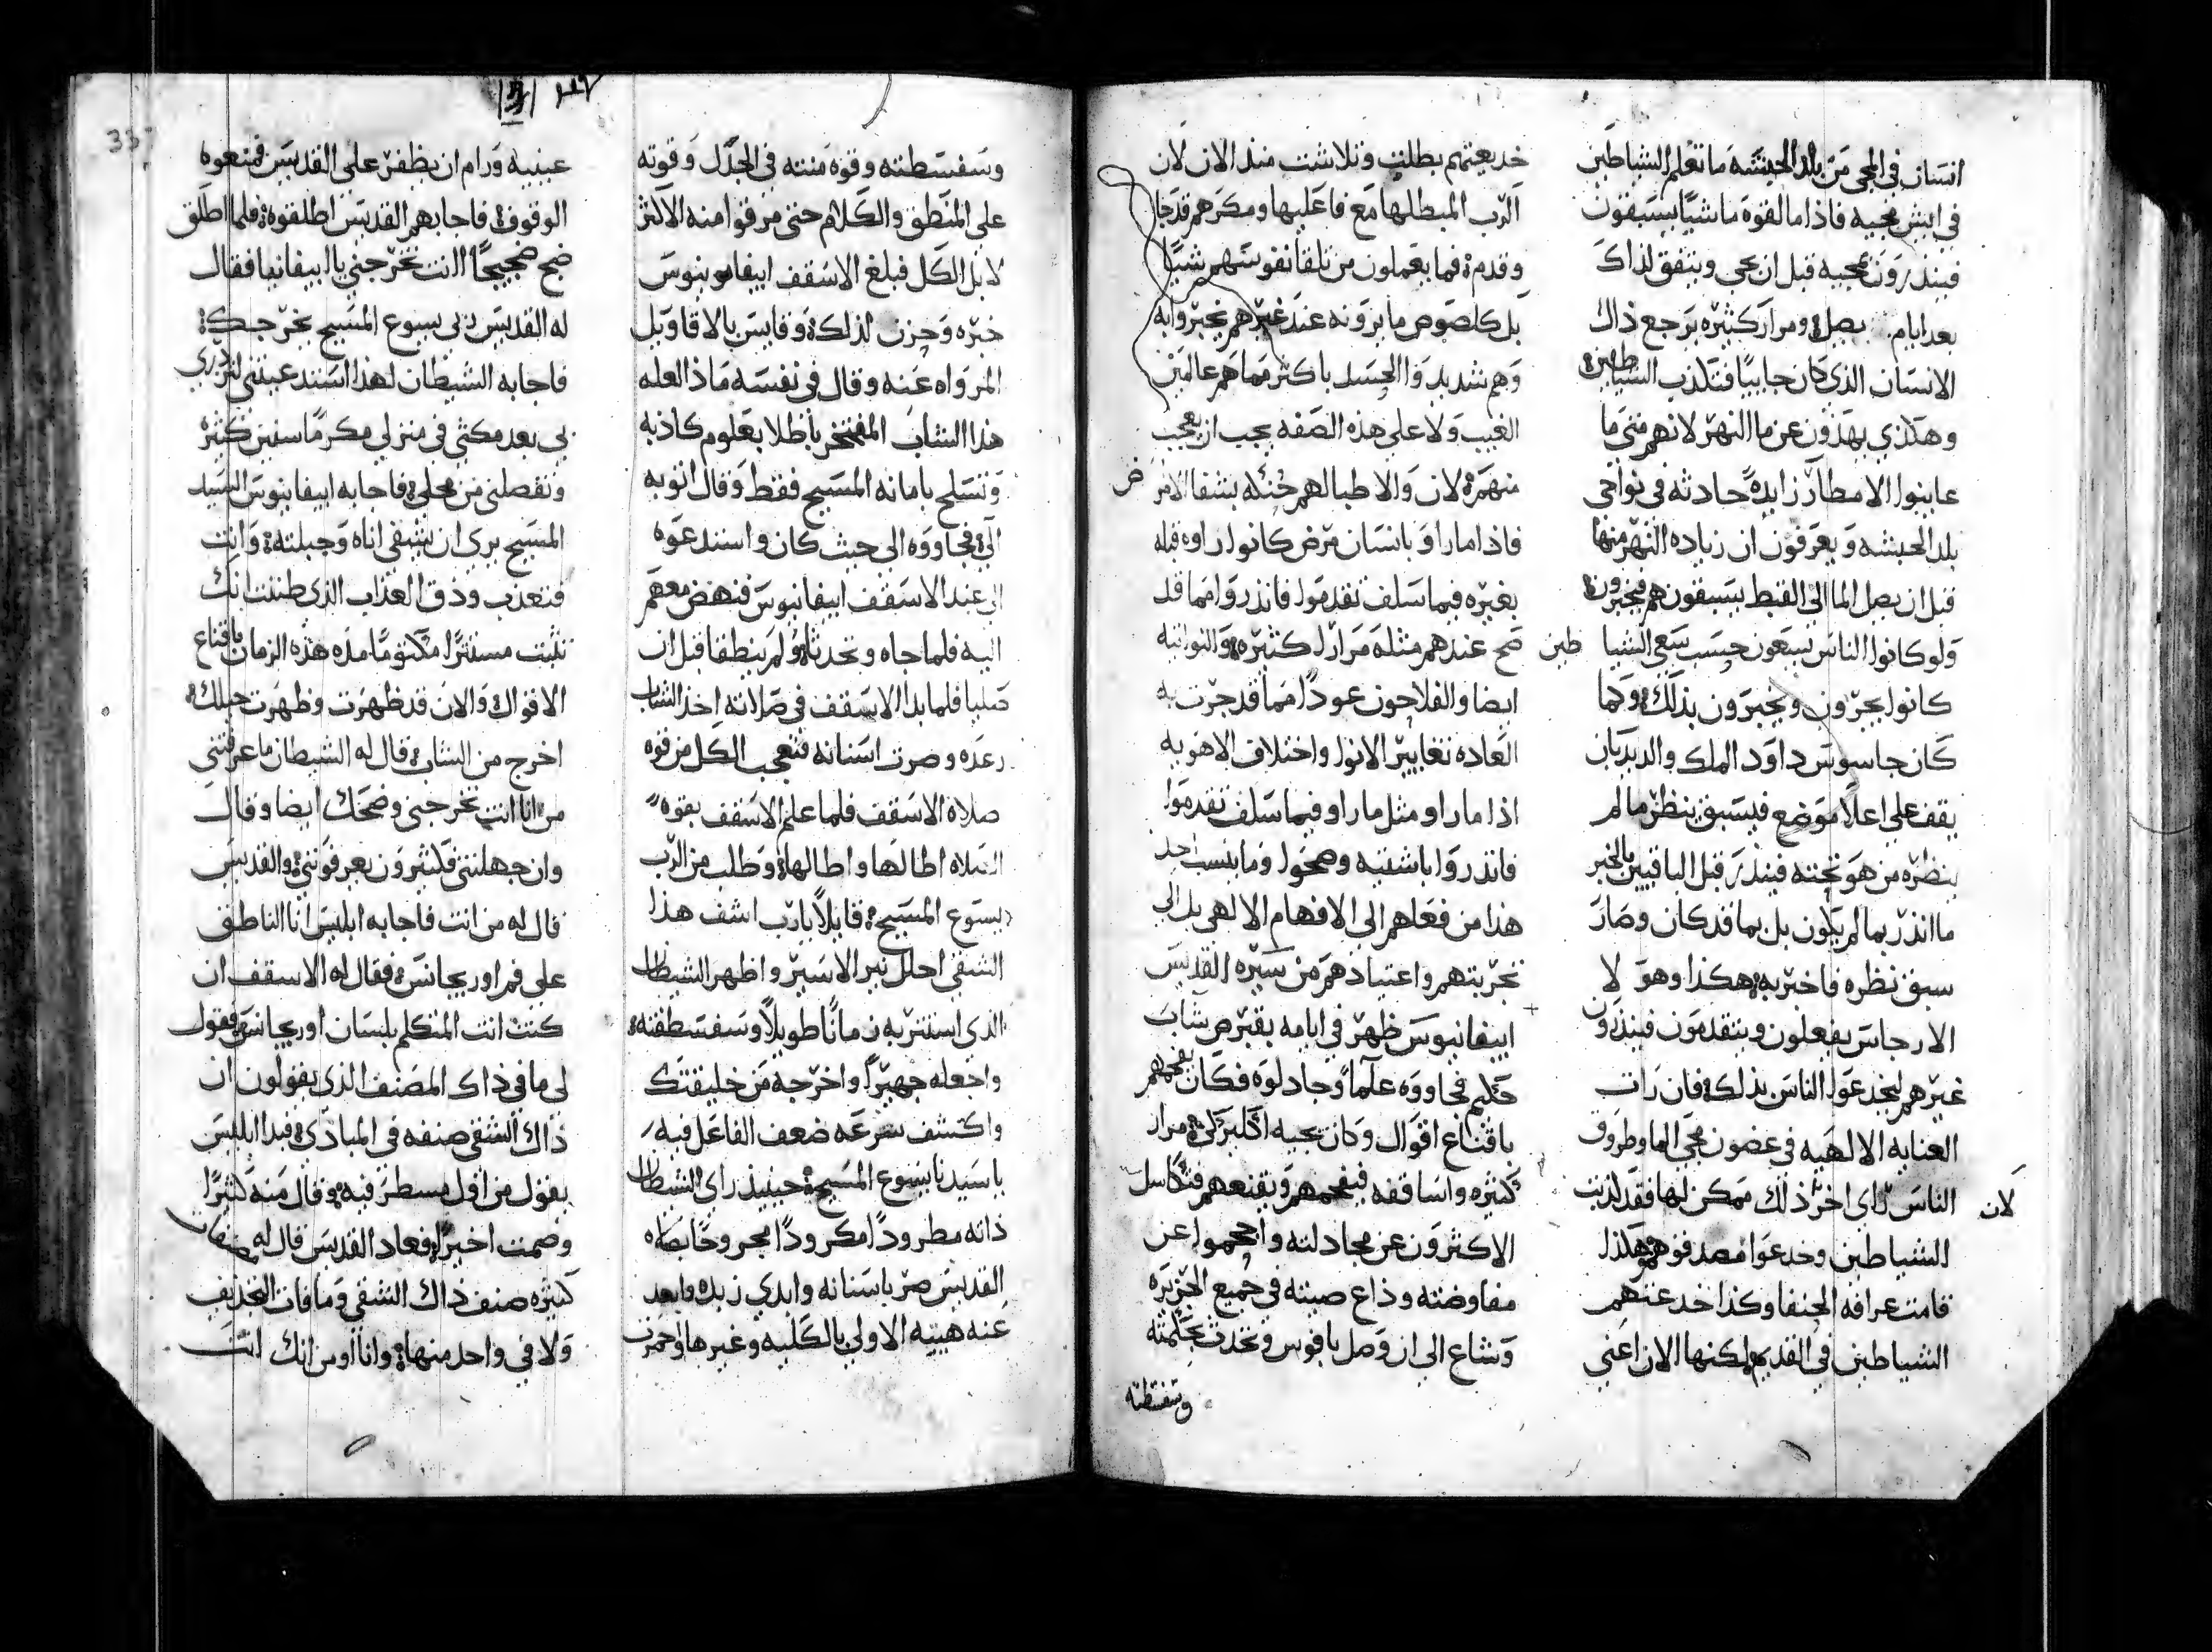 انسان في المجي من بلد الحبشه ما تعلم الشياطين
في ايش يجيه فاذا ما القوه ماشيًا يسبقون
فينذرون بمجيه قبل ان يجي ويتفق لذاك
بعد ايام يصل ومرار كثيره يرجع ذاك
الانسان الذي كان جاييًا فتكذب الشياطين
وهكذي يهذون عن ما النهر لانهم متى ما
عاينوا الامطار زايدةً حادثه في نواحي
بلد الحبشه ويعرفون ان زياده النهر منها
قبل ان يصل الما الي القبط يسبقون هم فيخبرون
ولو كانوا الناس يسعون حسب سعي الشيا طين
كانوا يجرون ويخبرون بذلك وكما
كان جاسوس داود الملك والديدبان
يقف علي اعلا موضع فيسبق ينظر ما لم
ينظره من هو تحته فينذر قبل الباقيين بالخبر
ما انذر بما لم يكون بل بما قد كان وصار
سبق نظره فاخبر به هكذا وهو لا
الارجاس يفعلون ويتقدمون فينذرون
غيرهم ليخدعوا الناس بذلك فان رات
العنايه الالهيه في غضون مجي الما وطروق
الناس راي اخر ذلك ممكن لها فقد كذبت لان
الشياطين وخدعوا مصدقوهم هكذا
قامت عرافه الحنفا وكذا خدعتهم
الشياطين في القديم لكنها الان اعني
خديعتهم بطلت وتلاشت منذ الان لان
الرب المبطلها مع فاعليها ومكرهم قد جا
وقدم فما يعملون من تلقا نفوسهم شيئًا
بل كلصوص ما يرونه عند غيرهم يخبروا به
وهم شديدوا الحسد باكثر مما هم عالمين
الغيب ولا علي هذه الصفه يجب ان يعجب
منهم لان والاطبا لهم حُنكه بشفا الامر ض
فاذا ما راوا بانسان مرض كانوا راوه قبله
بغيره فيما سلف تقدموا فانذروا مما قد
صح عندهم مثله مرارًا كثيره والنواتيه
ايضا والفلاحون عودًا مما قد جرت به
العاده تغايير الانوا واختلاف الاهويه
اذا ما راوا مثل ما راوا فيما سلف تقدموا
فانذروا باشتيه وصحوا وما ينسب احد
هذا من فعلهم الى الافهام الالهي بل الي
تجربتهم واعتيادهم من سيره القديس
ابيفانيوس ظهر في ايامه بقبرص شاب
حكيم فجاووه علمآ وجادلوه فكان يفحمهم
باقناع اقوال وكان يجيه اكليركي مرار
كثيره واساقفه فيفحمهم ويقنعهم فتكاسل
الاكثرون عن مجادلته واحجموا عن
مفاوضته وذاع صيته في جميع الجزيره
وشاع الى ان وصل بافوس وتحدث بحكمته
وسفسطته
وسفسطته وقوه منته في الجدل وقوته
على المنطق والكلام حتى مرقوا منه الاكثر
لا بل الكل فبلغ الاسقف ابيفانيوس
خبره وحزن لذلك وقايس بالاقاويل
المرواه عنه وقال في نفسه ماذا لعله
هذا الشاب المفتخر باطلا بعلوم كاذبه
وتسلح بامانه المسيح فقط وقال اتوبه
الي فجاووه الى حيث كان واستدعوه
الي عند الاسقف ابيفانيوس فنهض معهم
اليه فلما جاه وتحدثا ولم ينطقا قبل ان
صليا فلما بدا الاسقف في صلاته اخذ الشاب
رعده وصرت اسنانه فتعجب الكل من قوه
صلاة الاسقف فلما علم الاسقف بقوه
الصلاه اطالها واطالها وطلب من الرب
يسوع المسيح قايلًا يا رب اشف هذا
الشقي احلل نير الاسير واظهر الشيطان
الذي استتر به زمانًا طويلًا وسفسطفته
واجعله جهيرًا واخرجه من خليقتك
واكشف سرعه ضعف الفاعل فيه
يا سيدنا يسوع المسيح حينيذ راي الشيطان
ذاته مطرودًا مكرودًا مجروحًا بصلاه
القديس صر باسنانه وابدي زبده وابعد
عنه هييه الاولي بالكليه وغيرها واحمرت
عينيه ورام ان يظفر علي القديس فمنعوه
الوقوف فاجابهم القديس اطلقوه فلما اطلق
ضج ضجيجًا انت تخرجني يا ابيفانيا فقال
له القديس ربي يسوع المسيح يخرجك
فاجابه الشيطان لهذا السند عينتني لتزدري
بي بعد مكثي في منزلي مكرمًا سنين كثيره
وتفصلني من محلي فاجابه ابيفانيوس السيد
المسيح يري ان يشفي اناه وجبلته وانت
فتعذب وذق العذاب الذي ظننت انك
تلبث مستترًا مكتومًا مده هذه الزمان باقناع
الاقوال والان قد ظهرت وظهرت حيلك
اخرج من الشاب قال له الشيطان ما عرفتني
من انا انت تخرجني وضحك ايضا وقال
وان جهلتني فكثيرون يعرفونني والقديس
قال له من انت فاجابه ابليس انا الناطق
على فم اوريجانس فقال له الاسقف ان
كنت انت المتكلم بلسان اوريجانس فقول
لي ما في ذاك المصنف الذي يقولون ان
ذاك الشقي صنفه في المبادي فبدا ابليس
يقول من اول مسطر فيه وقال منه كثيرًا
وصمت اخيرًا فعاد القديس قال له مصنفات
كثيره صنف ذاك الشقي وما فات التجديف
ولا في واحد منها وانا اومن انك انت